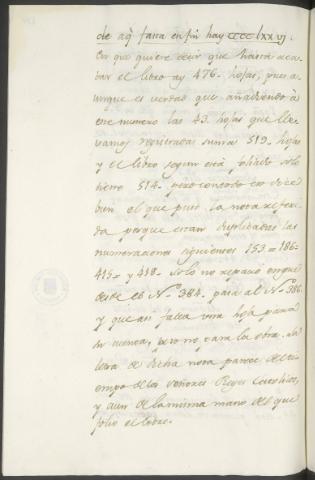 de aq̃ fasta en fin hay cccc lxxvj.
En que quiere decir que hasta aca-
bar el libro ay 476. hojas, pues a-
unque es verdad que añadiendo à
ese numero las 43. hojas que lle-
vamos registradas suman 519. hojas
y el libro segun está foliado solo
tiene 514. pero con todo eso dice
bien el que puso la nota referi-
da porque estan duplicadas las
numeraciones siguientes 153 = 186=
415= y 418. Solo no reparó en que
desde el Nº 384. pasa al Nº 386
y que asi falta una hoja para
su cuenta, pero no para la obra. La
letra de dicha nota parece del ti-
empo de los señores Reyes Catolicos,
y aun de la misma mano del que
folió el libro.